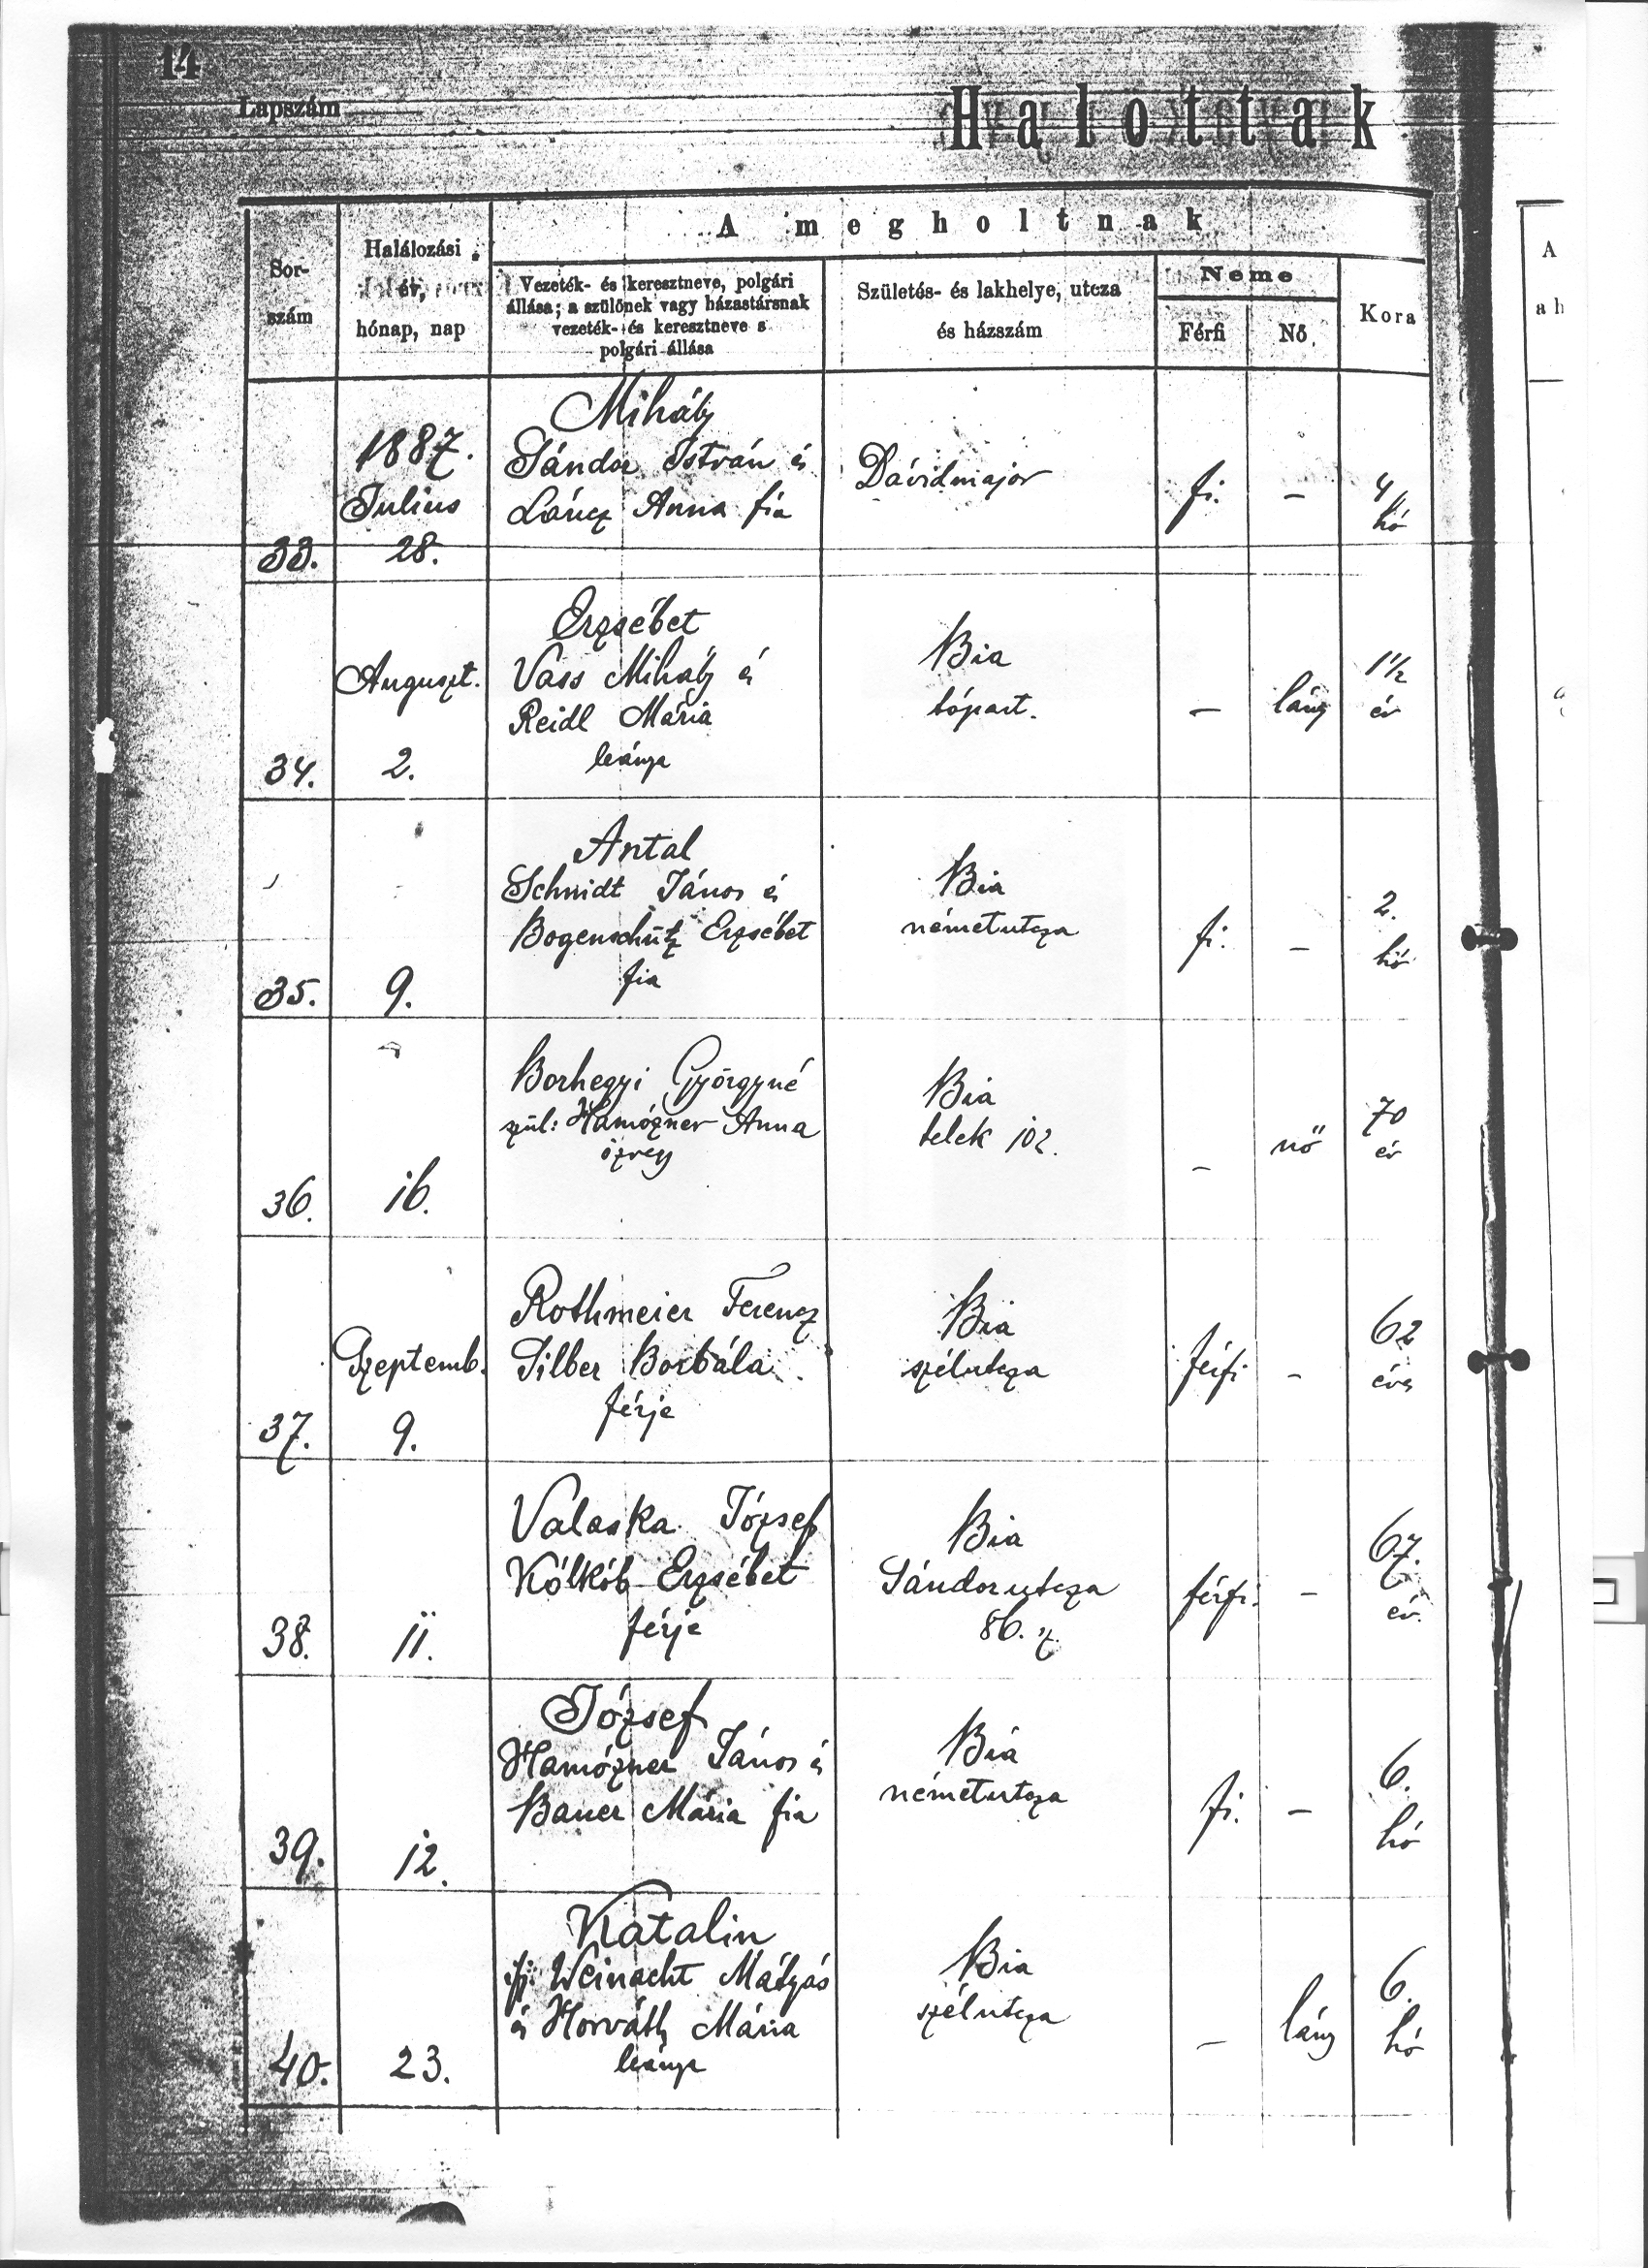 14
Lapszám
Halottak
A megholtnak
Sor-
szám
Halálozási
év,
hónap, nap
Vezeték- és keresztneve, polgári
állása; a szülőnek vagy házastársnak
vezeték- és keresztneve s
polgári állása
Születés- és lakhelye, utcza
és házszám
Neme
Férfi
Nő
Kora
A
a h
33.
1887.
Julius
28.
Mihály
Sándor István és
Láncz Anna fia
Dávidmajor
fi.
–
4
hó
34.
Auguszt.
2.
Erzsébet
Vass Mihály és
Reidl Mária
leánya
Bia
tópart.
–
lány
1 1/2
év
35.
9.
Antal
Schmidt János és
Bogenschütz Erzsébet
fia
Bia
németutcza
fi.
–
2.
hó
36.
16.
Borhegyi Györgyné
szül: Hamózner Anna
özvegy
Bia
telek 102.
–
nő
70
év
37.
Szeptemb.
9.
Rothmeier Ferencz
Silber Borbála
férje
Bia
szélutcza
férfi
–
62
éves
38.
11.
Valaska József
Erzsébet
férje
Bia
Sándorutcza
86. sz.
férfi.
–
67.
év.
39.
12.
József
Hamózner János és
Bauer Mária fia
Bia
németutcza
fi.
–
6.
hó
40.
23.
Katalin
ifj: Weinacht Mátyás
és Horváth Mária
leánya
Bia
szélutcza
–
lány
6.
hó